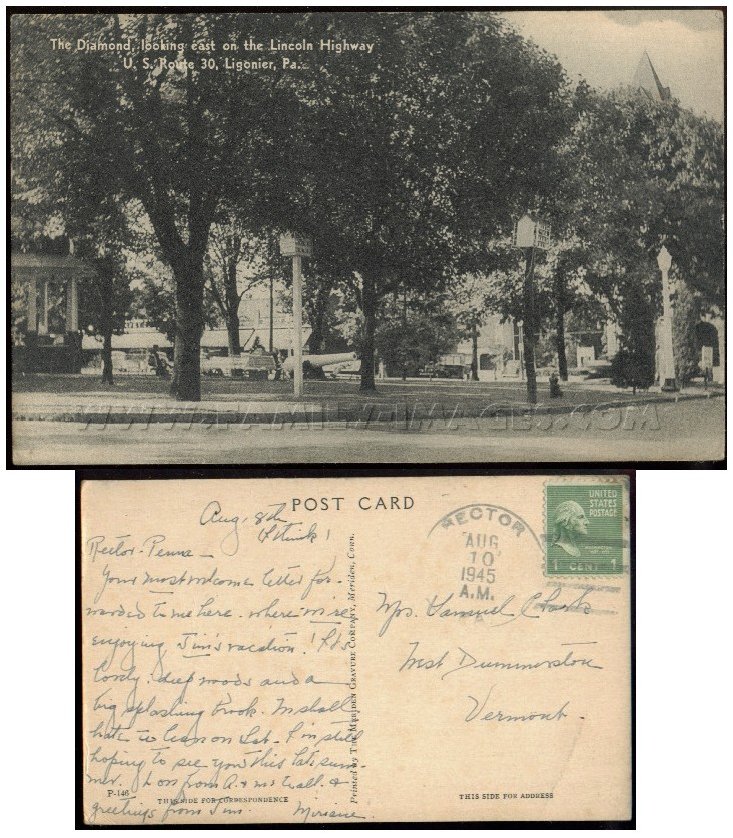 The Diamond, looking east on the Lincoln Highway
U. S. Route 30, Ligonier, Pa.
WWW.FAMILY-IMAGES.COM
POST CARD
Aug. 8th
I think!
Rector - Penna -
Your most welcome letter for-
warded to me here. where we're
enjoying Jim's vacation! It's
lovely: deep woods and a
big splashing brook. We shall
hate to leave on Sat. I'm still
hoping to see you this late sum-
mer. from A. + &
greetings from Jim.
P-146
THIS SIDE FOR CORRESPONDENCE
Printed by THE MERIDEN GRAVURE COMPANY, Meriden, Conn.
RECTOR
AUG
10
1945
A.M.
PA
UNITED
STATES
POSTAGE
WASHINGTON
1 CENT 1
Mrs. Samuel
West Dummerston
Vermont.
THIS SIDE FOR ADDRESS